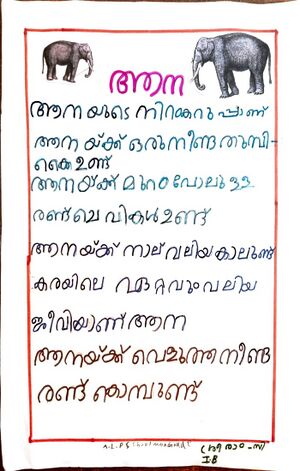 ആന
ആന യുടെ നിറം കറുപ്പാണ്
ആന യ്ക്ക് ഒരു നീണ്ട തുമ്പി-
കൈ ഉണ്ട്
ആനയ്ക്ക് മുറം പോലുള്ള
രണ്ട് ചെവികൾ ഉണ്ട്
ആനയ്ക്ക് നാല് വലിയ കാലുണ്ട്
കരയിലെ ഏറ്റവും വലിയ
ജീവിയാണ് ആന
ആനയ്ക്ക് വെളുത്ത നീണ്ട
രണ്ട് കൊമ്പുണ്ട്
I B